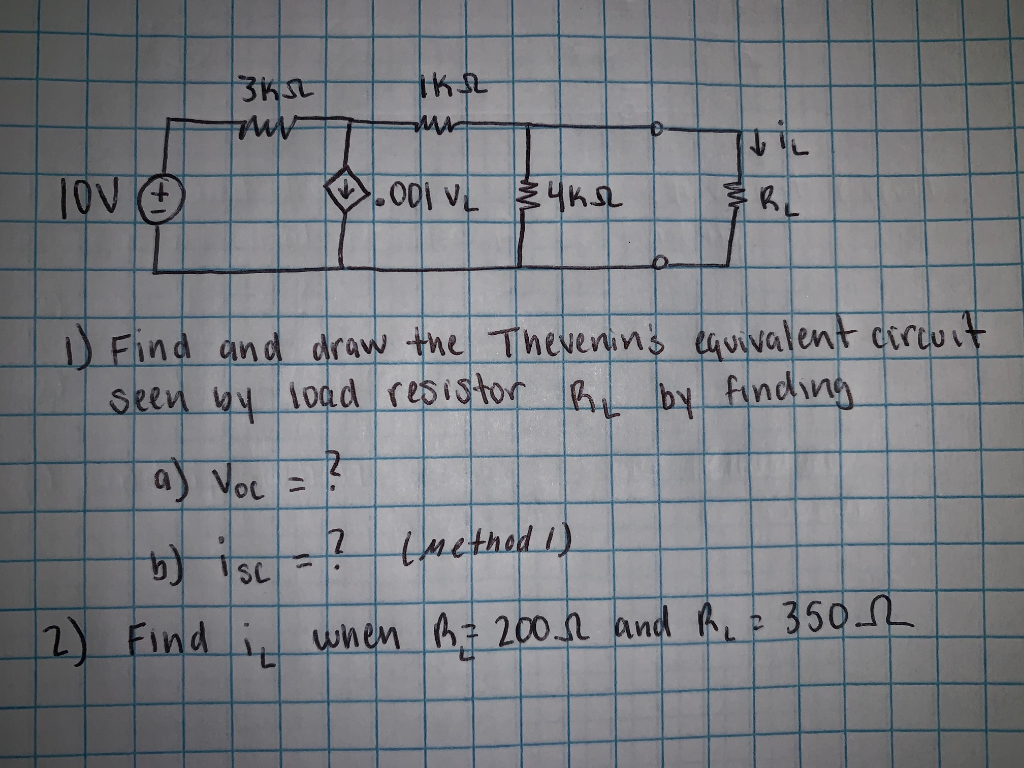 3KΩ 1KΩ
10V + - .001 VL 4KΩ ↓ iL RL
1) Find and draw the Thevenin's equivalent circuit
seen by load resistor RL by finding
a) Voc = ?
b) isc = ? (Method 1)
2) Find iL when RL = 200Ω and RL = 350Ω